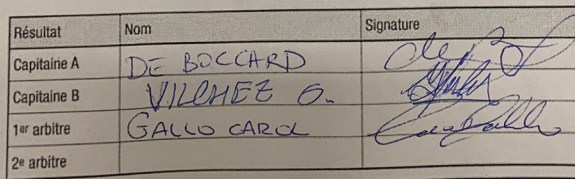 Résultat Nom Signature
Capitaine A DE BOCCARD
Capitaine B VILCHEZ G.
1er arbitre GALLO CAROL
2e arbitre